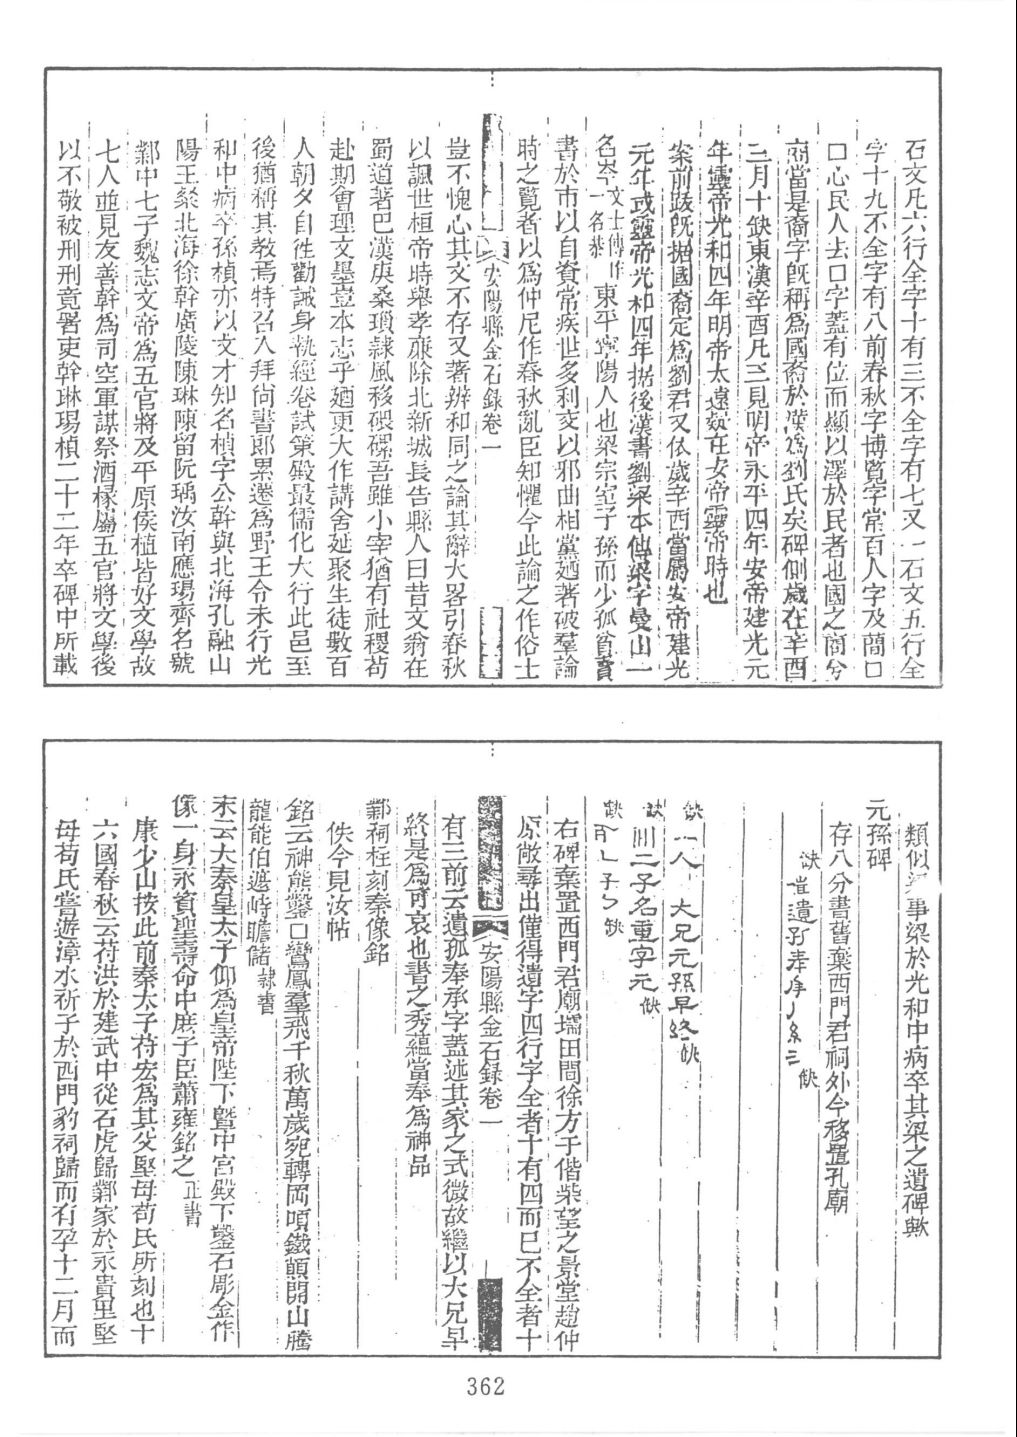 石文凡六行全字十有三不全字有七又一石文五行全
字十九不全字有八前春秋字博覽字常百人字及蕳口
口心民人去口字蓋有位而顯以澤於民者也國之蕳兮
商當是裔字旣稱為國裔於漢為劉氏矣碑側歲在辛酉
三月十缺東漢辛酉凡三見明帝永平四年安帝建光元
年靈帝光和四年明帝太遠疑在安帝靈帝時也
案前跋旣據國裔定為劉君又依歲辛酉當屬安帝建光
元年或靈帝光和四年据後漢書劉梁本傳梁字曼山一
名岑文士傳作一名恭東平寧陽人也梁宗室子孫而少孤貧賣
書於市以自資常疾世多利交以邪曲相黨廼著破羣論
時之覽者以為仲尼作春秋亂臣知懼今此論之作俗士
安陽縣金石錄卷一
豈不愧心其文不存又著辨和同之論其辭大畧引春秋
以諷世桓帝時舉孝亷除北新城長告縣人曰昔文翁在
蜀道著巴漢庚桑瑣隷風移碨磥吾雖小宰猶有社稷苟
赴期會理文墨豈本志乎廼更大作講舍延聚生徒數百
人朝夕自徃勸誡身執經卷試策殿最儒化大行此邑至
後猶稱其教焉特召入拜尚書郎累遷為野王令未行光
和中病卒孫楨亦以文才知名楨字公幹與北海孔融山
陽王粲北海徐幹廣陵陳琳陳留阮瑀汝南應瑒齊名號
鄴中七子魏志文帝為五官將及平原侯植皆好文學故
七人並見友善幹為司空軍謀祭酒椽屬五官將文學後
以不敬被刑刑竟署吏幹琳瑒楨二十二年卒碑中所載
類似梁事梁於光和中病卒其梁之遺碑歟
元孫碑
存八分書舊棄西門君祠外今移置孔廟
缺豈遺孤奉承糸三缺
缺一人大兄元孫早終缺
缺川二子名重字元缺
缺子缺
右碑棄置西門君廟壖田間徐方于偕柴望之景堂趙仲
原敞尋出僅得遺字四行字全者十有四而已不全者十
安陽縣金石錄卷一
有三前云遺孤奉承字蓋述其家之式微故繼以大兄早
終是為可哀也書之秀蘊當奉為神品
鄴祠柱刻秦像銘
佚今見汝帖
銘云神熊鑿口鸞鳳羣飛千秋萬歲宛轉岡頭鐵顫開山騰
龍能伯邊峙瞻儲隷書
末云大秦皇太子仰為皇帝陛下曁中宮殿下鑿石彫金作
像一身永資聖壽命中庶子臣蕭雍銘之正書
康少山按此前秦太子苻宏為其父堅母苟氏所刻也十
六國春秋云苻洪於建武中從石虎歸鄴家於永貴里堅
母苟氏嘗遊漳水祈子於西門豹祠歸而有孕十二月而
362